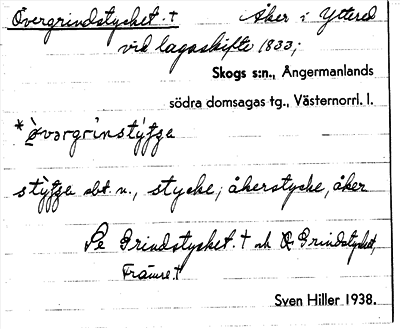 Övergrindstycket. † Åker i Yttered
vid lagaskifte 1833;
Skogs s:n., Ångermanlands
södra domsagas tg., Västernorrl. l.
stycke; åkerstycke, åker
Se Grindstycket. † och Grindstycket,
Främre. †
Sven Hiller 1938.